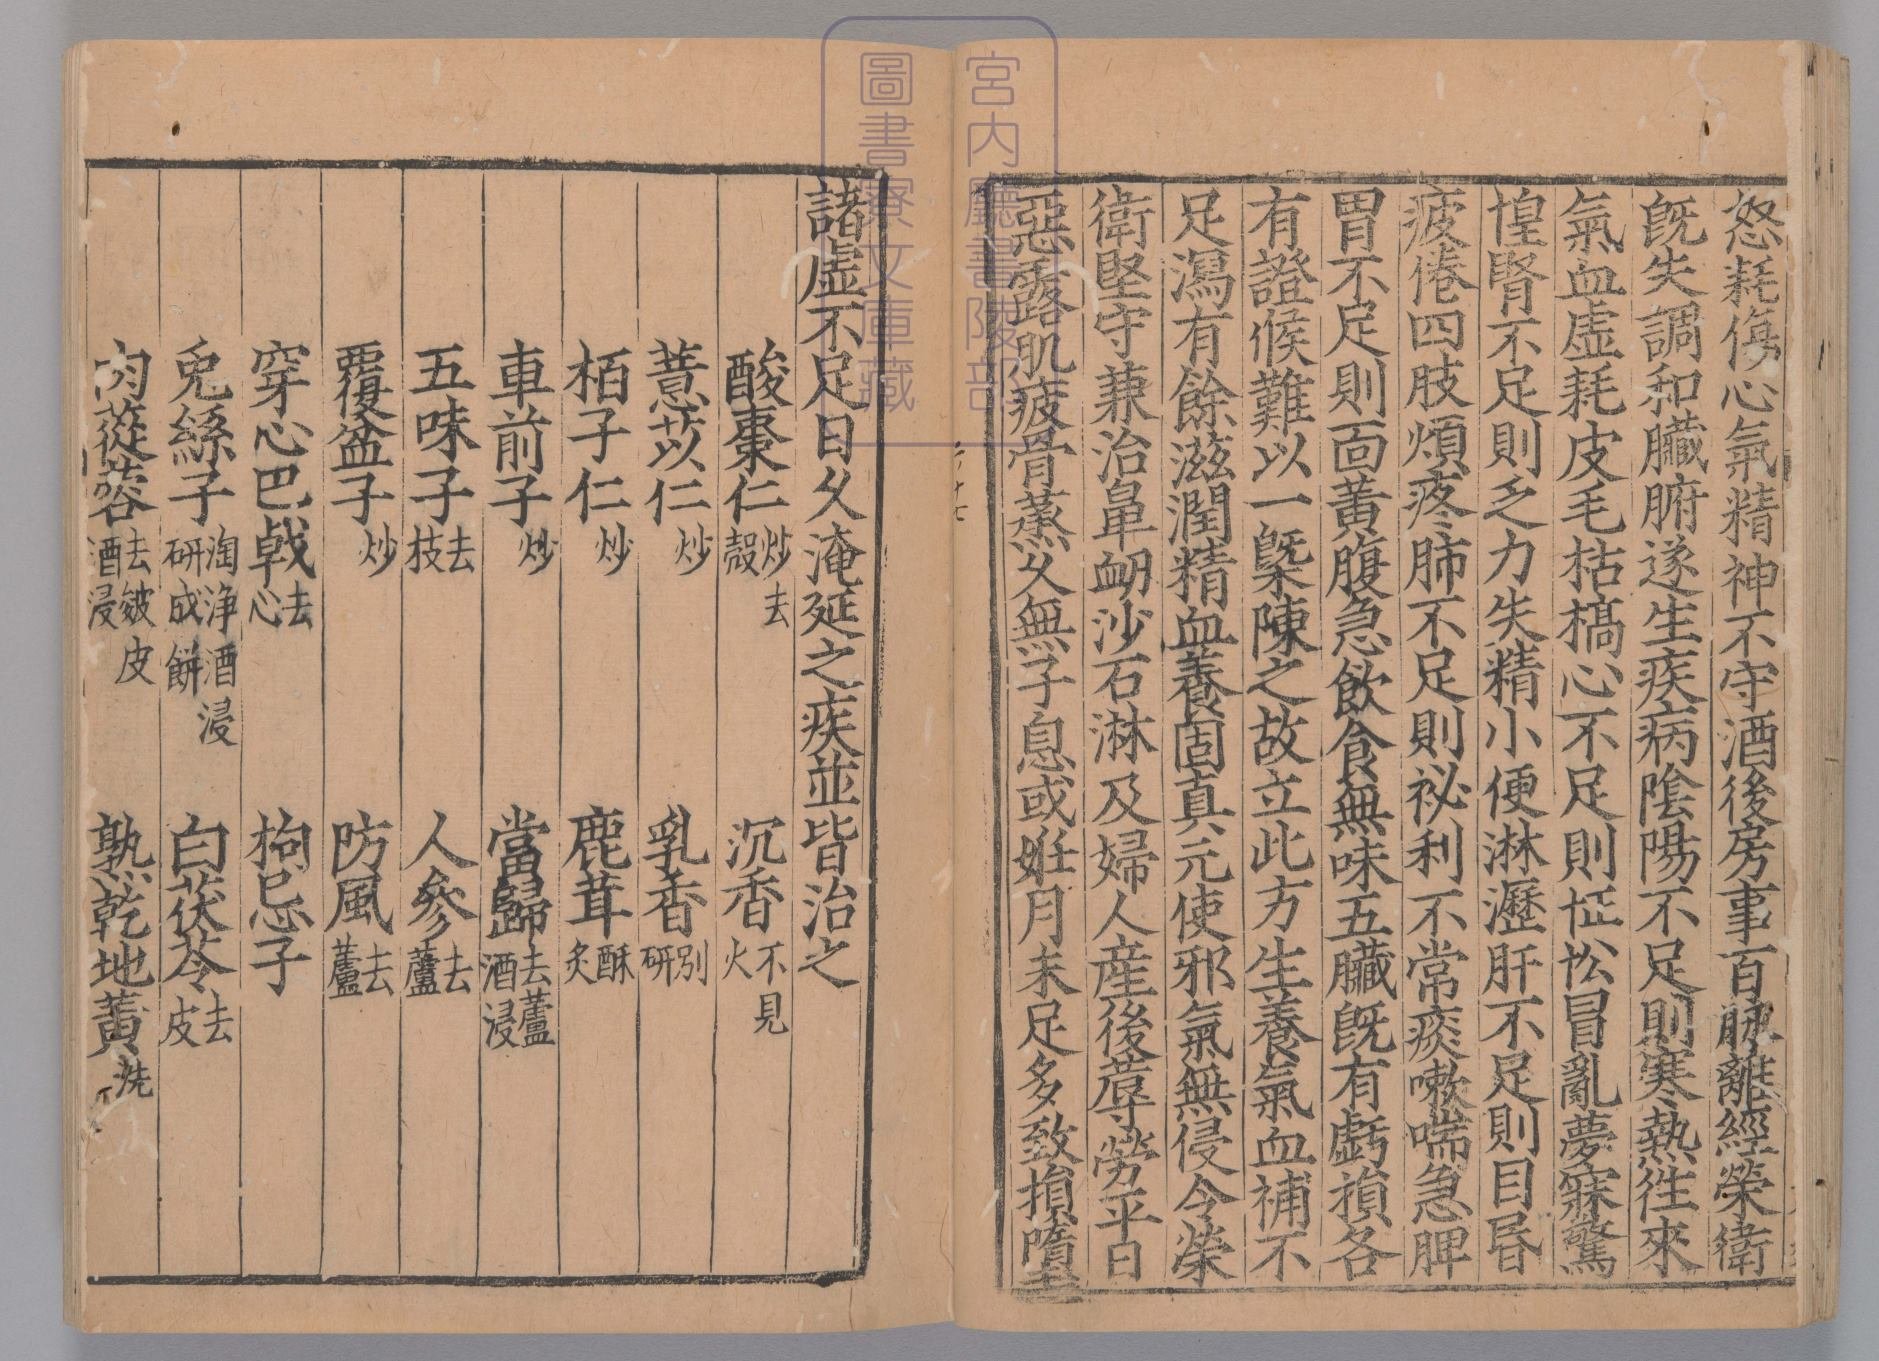 怒耗傷心氣精神不守酒後房事百脉離經榮衛
旣失調和臟腑遂生疾病陰陽不足則寒熱徃來
氣血虛耗皮毛枯槁心不足則怔忪冒亂夢寐驚
惶腎不足則乏力失精小便淋瀝肝不足則目昏
疲倦四肢煩疼肺不足則祕利不常痰嗽喘急脾
胃不足則面黃腹急飲食無味五臟旣有虧損各
有證候難以一槩陳之故立此方生養氣血補不
足瀉有餘滋潤精血養固真元使邪氣無侵令榮
衛堅守兼治鼻衂沙石淋及婦人産後蓐勞平日
惡露肌疲骨蒸久無子息或姙月未足多致損墮
諸虛不足日久淹延之疾並皆治之
酸棗仁炒去殼 沉香不見火
薏苡仁炒 乳香別研
栢子仁炒 鹿茸酥炙
車前子炒 當歸去蘆酒浸
五味子去枝 人參去蘆
覆盆子炒 防風去蘆
穿心巴戟去心 枸杞子
兔絲子淘淨酒浸研成餅 白茯苓去皮
肉蓯蓉去皴皮酒浸 熟乾地黃洗
宮内廳書陵部
圖書寮文庫藏